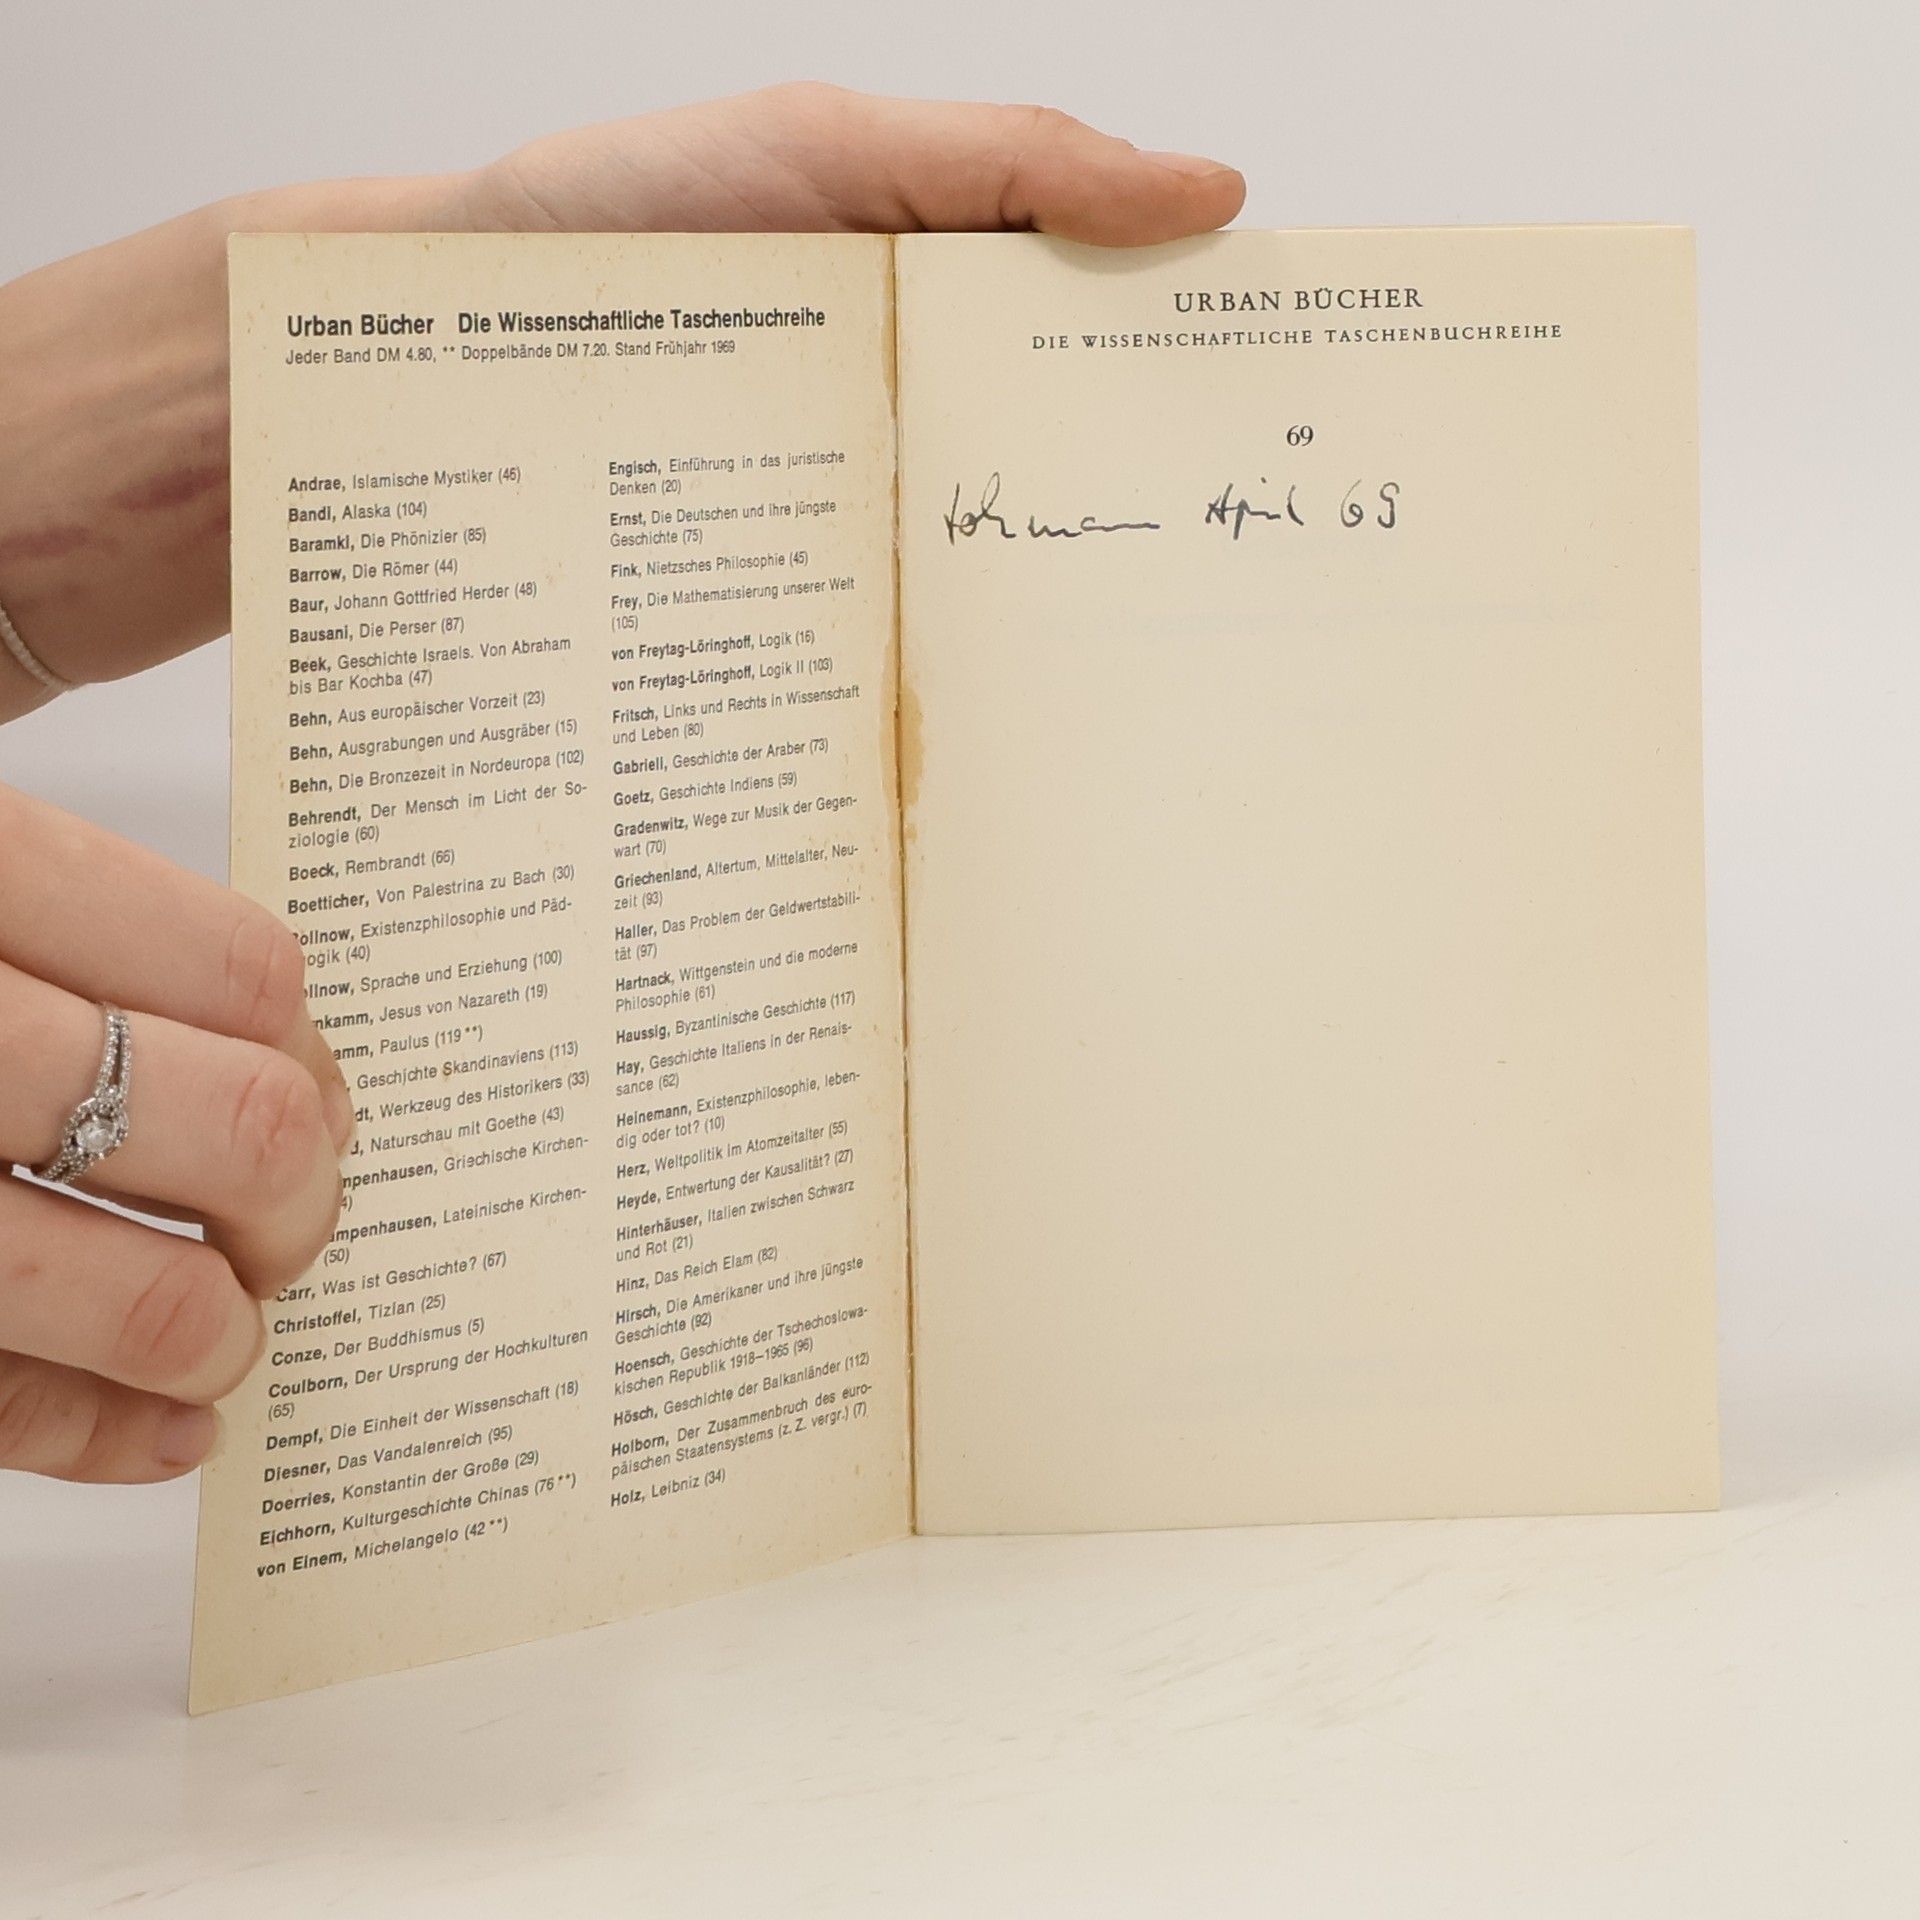 Urban Bücher Die Wissenschaftliche Taschenbuchreihe
Jeder Band DM 4.80, ** Doppelbände DM 7.20. Stand Frühjahr 1969
Andrae, Islamische Mystiker (46)
Bandi, Alaska (104)
Baramki, Die Phönizier (85)
Barrow, Die Römer (44)
Baur, Johann Gottfried Herder (48)
Bausani, Die Perser (87)
Beek, Geschichte Israels. Von Abraham
bis Bar Kochba (47)
Behn, Aus europäischer Vorzeit (23)
Behn, Ausgrabungen und Ausgräber (15)
Behn, Die Bronzezeit in Nordeuropa (102)
Behrendt, Der Mensch im Licht der So-
ziologie (60)
Boeck, Rembrandt (66)
Boetticher, Von Palestrina zu Bach (30)
ollnow, Existenzphilosophie und Päd-
ogik (40)
llnow, Sprache und Erziehung (100)
nkamm, Jesus von Nazareth (19)
amm, Paulus (119**)
, Geschichte Skandinaviens (113)
dt, Werkzeug des Historikers (33)
d, Naturschau mit Goethe (43)
mpenhausen, Griechische Kirchen-
4)
mpenhausen, Lateinische Kirchen-
(50)
Carr, Was ist Geschichte? (67)
Christoffel, Tizian (25)
Conze, Der Buddhismus (5)
Coulborn, Der Ursprung der Hochkulturen
(65)
Dempf, Die Einheit der Wissenschaft (18)
Diesner, Das Vandalenreich (95)
Doerries, Konstantin der Große (29)
Eichhorn, Kulturgeschichte Chinas (76**)
von Einem, Michelangelo (42**)
Engisch, Einführung in das juristische
Denken (20)
Ernst, Die Deutschen und ihre jüngste
Geschichte (75)
Fink, Nietzsches Philosophie (45)
Frey, Die Mathematisierung unserer Welt
(105)
von Freytag-Löringhoff, Logik (16)
von Freytag-Löringhoff, Logik II (103)
Fritsch, Links und Rechts in Wissenschaft
und Leben (80)
Gabrieli, Geschichte der Araber (73)
Goetz, Geschichte Indiens (59)
Gradenwitz, Wege zur Musik der Gegen-
wart (70)
Griechenland, Altertum, Mittelalter, Neu-
zeit (93)
Haller, Das Problem der Geldwertstabili-
tät (97)
Hartnack, Wittgenstein und die moderne
Philosophie (61)
Haussig, Byzantinische Geschichte (117)
Hay, Geschichte Italiens in der Renais-
sance (62)
Heinemann, Existenzphilosophie, leben-
dig oder tot? (10)
Herz, Weltpolitik im Atomzeitalter (55)
Heyde, Entwertung der Kausalität? (27)
Hinterhäuser, Italien zwischen Schwarz
und Rot (21)
Hinz, Das Reich Elam (82)
Hirsch, Die Amerikaner und ihre jüngste
Geschichte (92)
Hoensch, Geschichte der Tschechoslowa-
kischen Republik 1918–1965 (96)
Hösch, Geschichte der Balkanländer (112)
Holborn, Der Zusammenbruch des euro-
päischen Staatensystems (z. Z. vergr.) (7)
Holz, Leibniz (34)
URBAN BÜCHER
DIE WISSENSCHAFTLICHE TASCHENBUCHREIHE
69
April 69